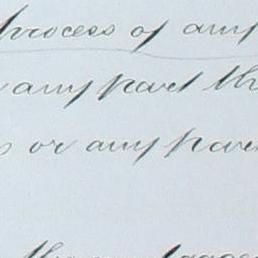 process of any
any part th
or any par